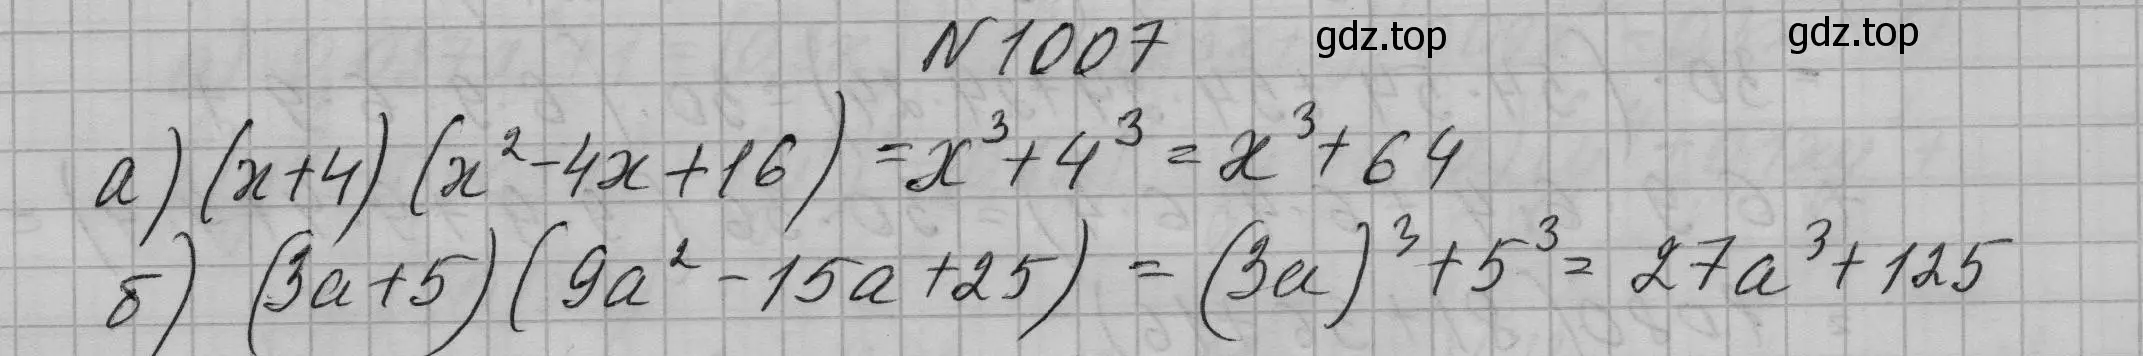 N 1007
gdz.top
gdz.top
а) (x+4)(x²-4x+16) = x³+4³ = x³+64
б) (3a+5)(9a²-15a+25) = (3a)³+5³ = 27a³+125